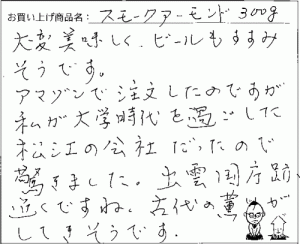 お買い上げ商品名： スモークアーモンド 300g
大変美味しく、ビールもすすみ
そうです。
アマゾンで注文したのですが
私が大学時代を過ごした
松江の会社だったので
驚きました。出雲国庁跡
近くですね。古代の薫が
してきそうです。